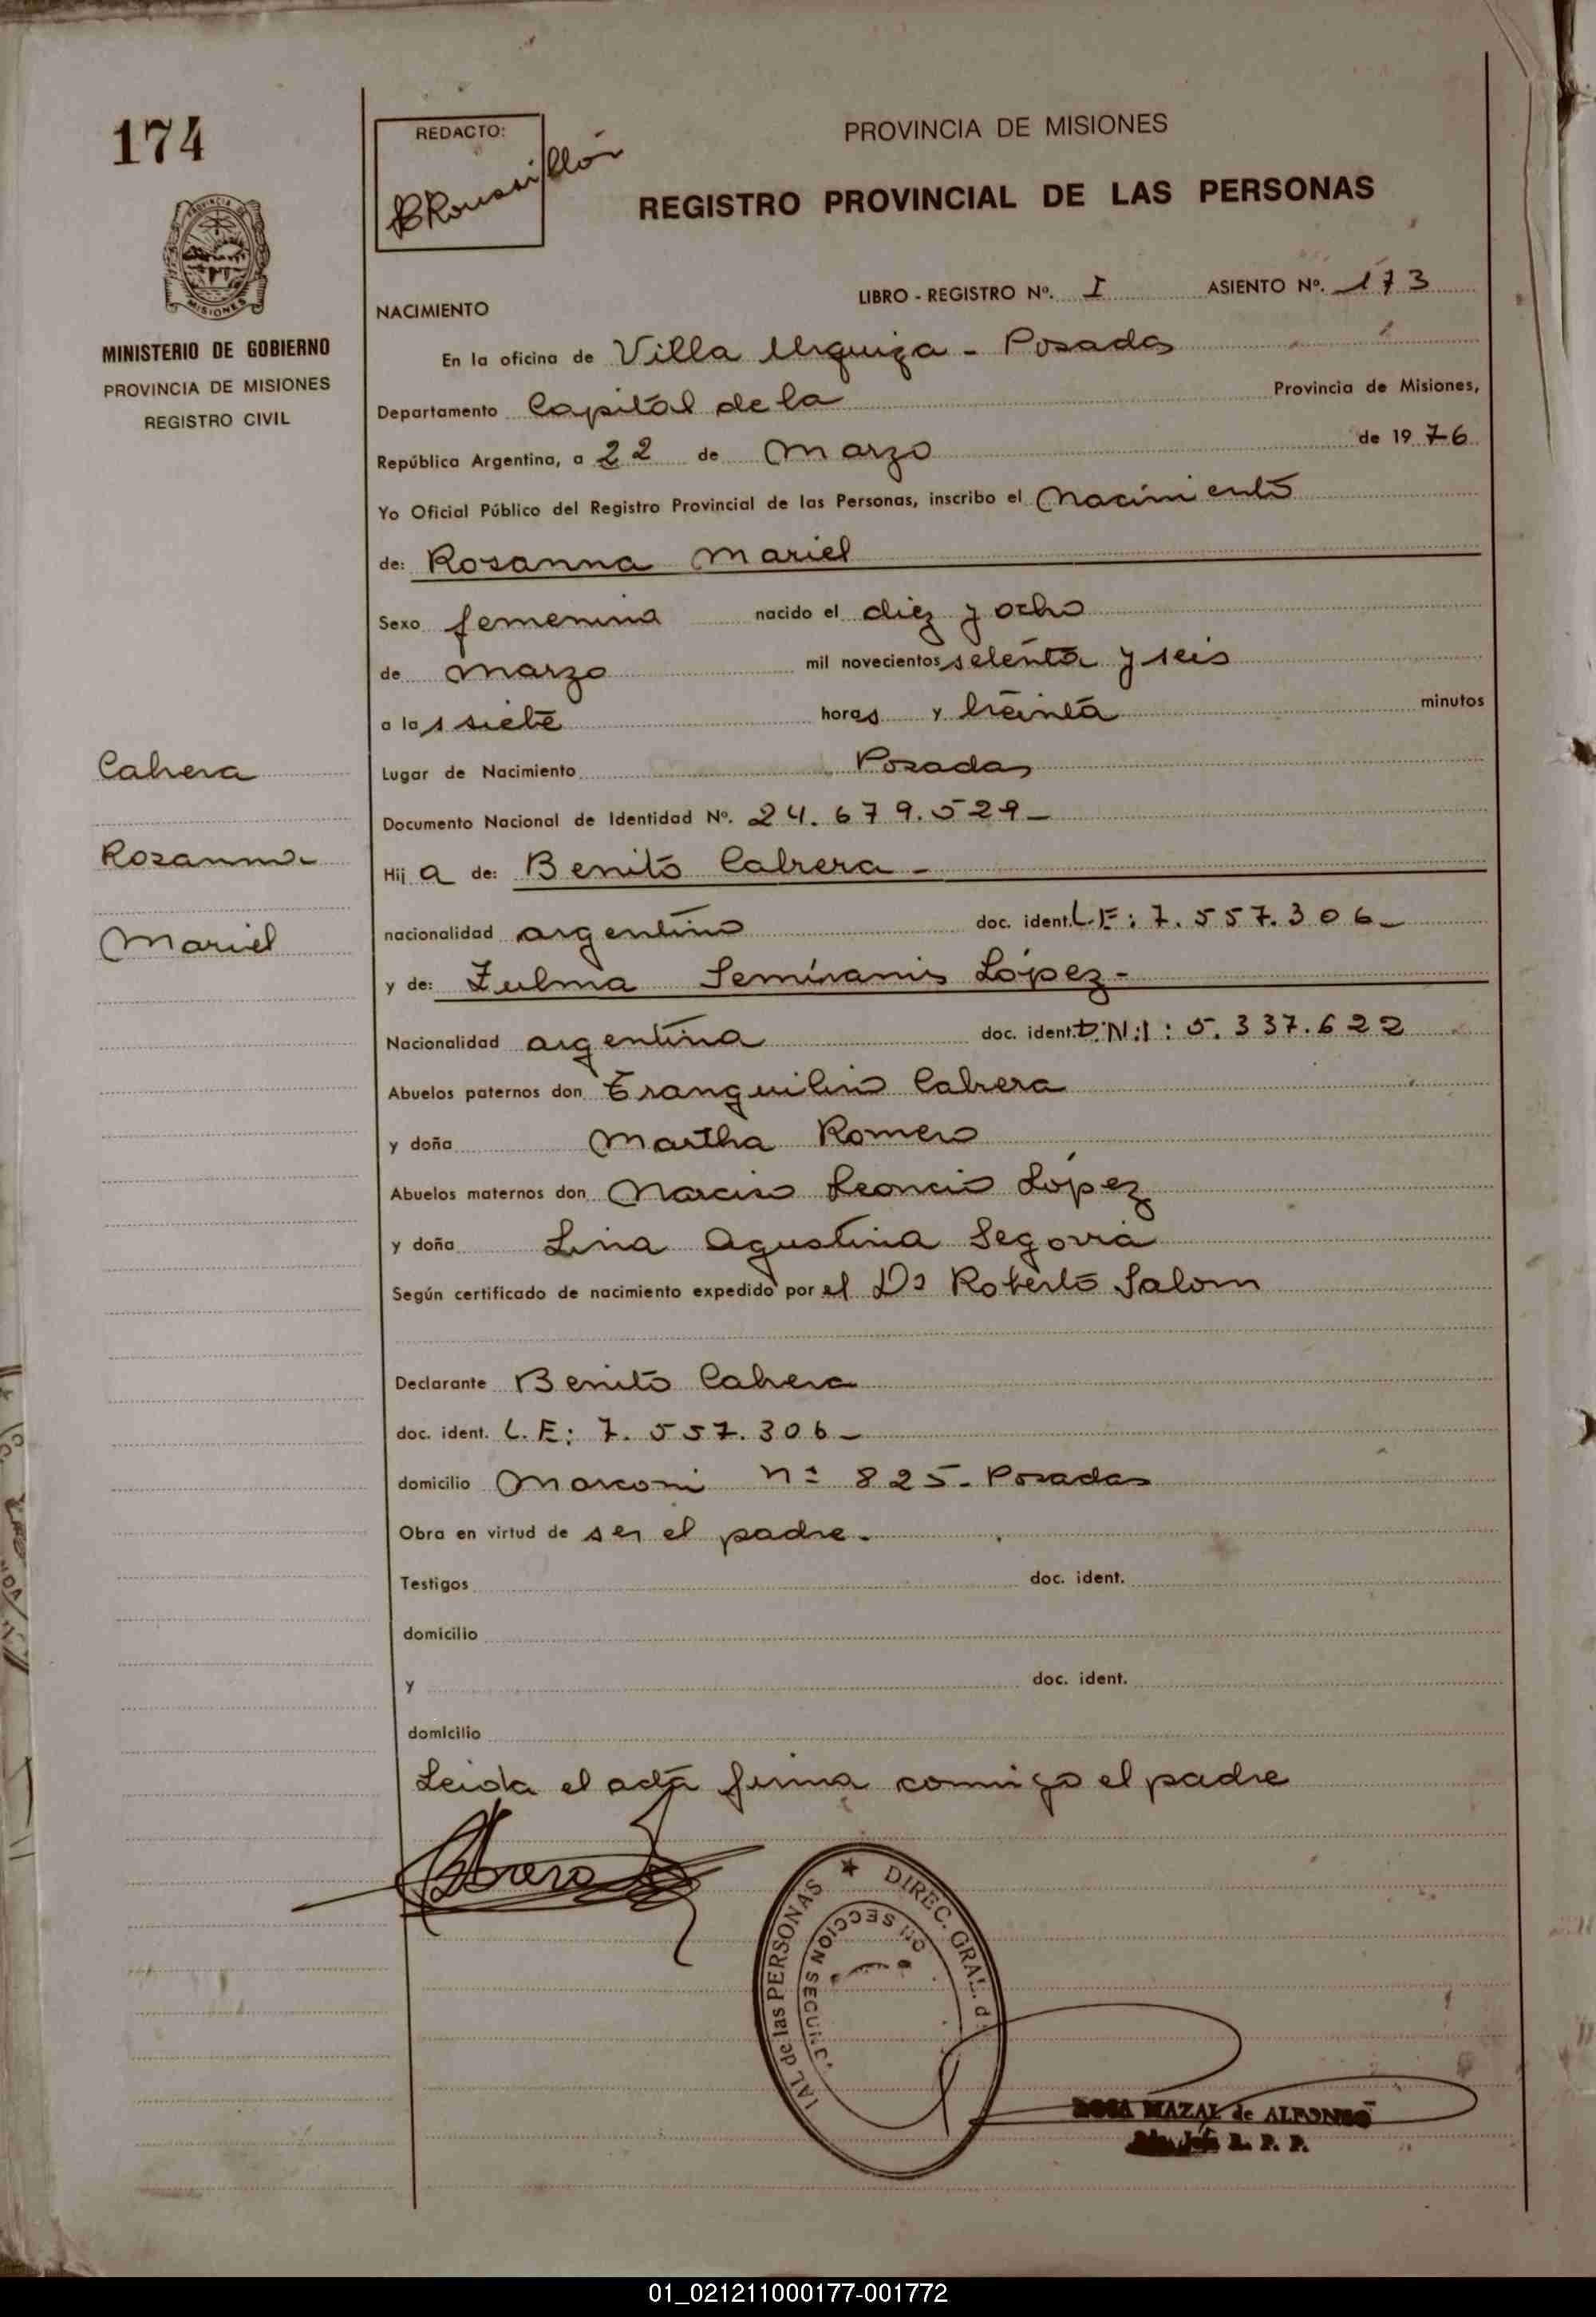 174
REDACTO:
PROVINCIA DE MISIONES
REGISTRO PROVINCIAL DE LAS PERSONAS
PROVINCIA DE
MISIONES
MINISTERIO DE GOBIERNO
PROVINCIA DE MISIONES
REGISTRO CIVIL
NACIMIENTO
LIBRO - REGISTRO Nº. I ASIENTO Nº. 173
En la oficina de Villa Urquiza - Posadas
Departamento Capital de la Provincia de Misiones,
República Argentina, a 22 de Marzo de 1976
Yo Oficial Público del Registro Provincial de las Personas, inscribo el Nacimiento
de: Rosanna Mariel
Sexo femenina nacido el diez y ocho
de Marzo mil novecientos setenta y seis
a las siete horas y treinta minutos
Lugar de Nacimiento Posadas
Documento Nacional de Identidad Nº. 24.679.529-
Hija de: Benito Cabrera-
nacionalidad argentino doc. ident. L.E: 7.557.306-
y de: Zulma Semíramis López-
Nacionalidad argentina doc. ident. D.N.I: 5.337.622
Abuelos paternos don Tranquilino Cabrera
y doña Martha Romero
Abuelos maternos don Narciso Leoncio López
y doña Lina Agustina Segovia
Según certificado de nacimiento expedido por el Dr Roberto Salom
Declarante Benito Cabrera
doc. ident. L.E: 7.557.306-
domicilio Marconi Nº 825- Posadas
Obra en virtud de ser el padre.
Testigos doc. ident.
domicilio
y doc. ident.
domicilio
Leida el acta firma conmigo el padre
Cabrera
Rosanna
Mariel
DIREC. GRAL. d
IAL de las PERSONAS
SECCION SECUND
ROSA MAZAL de ALFONSO
R. P. P.
01_021211000177-001772